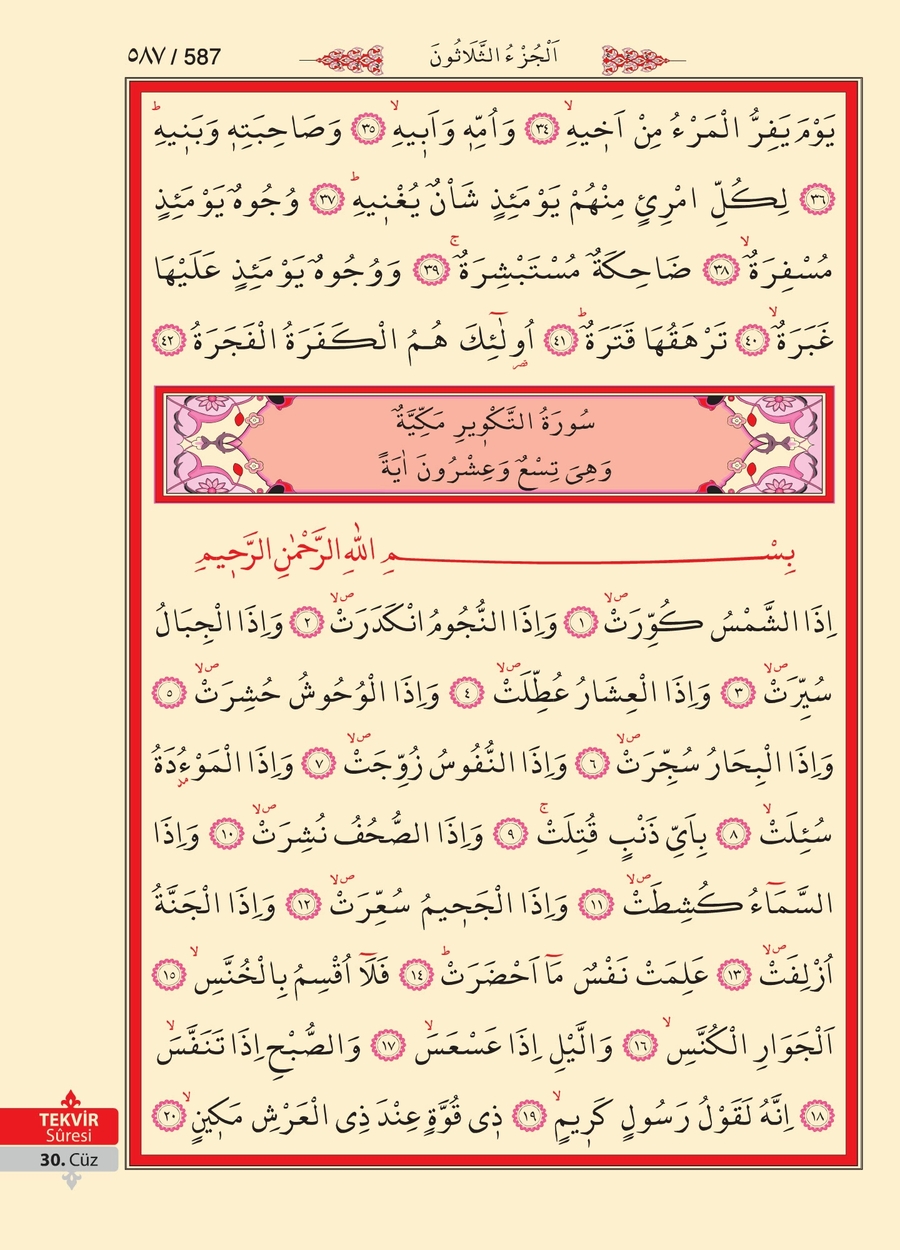 ٥٨٧ / 587 اَلْجُزْءُ الثَّلَاثُونَ
يَوْمَ يَفِرُّ الْمَرْءُ مِنْ اَخ۪يهِۙ ﴿٣٤﴾ وَاُمِّه۪ وَاَب۪يهِۙ ﴿٣٥﴾ وَصَاحِبَتِه۪ وَبَن۪يهِۜ
﴿٣٦﴾ لِكُلِّ امْرِئٍ مِنْهُمْ يَوْمَئِذٍ شَأْنٌ يُغْن۪يهِۜ ﴿٣٧﴾ وُجُوهٌ يَوْمَئِذٍ
مُسْفِرَةٌۙ ﴿٣٨﴾ ضَاحِكَةٌ مُسْتَبْشِرَةٌۚ ﴿٣٩﴾ وَوُجُوهٌ يَوْمَئِذٍ عَلَيْهَا
غَبَرَةٌۙ ﴿٤٠﴾ تَرْهَقُهَا قَتَرَةٌۜ ﴿٤١﴾ اُو۬لٰٓئِكَ هُمُ الْكَفَرَةُ الْفَجَرَةُ ﴿٤٢﴾
سُورَةُ التَّكْو۪يرِ مَكِّيَّةٌ
وَهِىَ تِسْعٌ وَعِشْرُونَ اٰيَةً
بِسْمِ اللهِ الرَّحْمٰنِ الرَّح۪يمِ
اِذَا الشَّمْسُ كُوِّرَتْۙۖ ﴿١﴾ وَاِذَا النُّجُومُ انْكَدَرَتْۙۖ ﴿٢﴾ وَاِذَا الْجِبَالُ
سُيِّرَتْۙۖ ﴿٣﴾ وَاِذَا الْعِشَارُ عُطِّلَتْۙۖ ﴿٤﴾ وَاِذَا الْوُحُوشُ حُشِرَتْۙۖ ﴿٥﴾
وَاِذَا الْبِحَارُ سُجِّرَتْۙۖ ﴿٦﴾ وَاِذَا النُّفُوسُ زُوِّجَتْۙۖ ﴿٧﴾ وَاِذَا الْمَوْءُ۫دَةُ
سُئِلَتْۙ ﴿٨﴾ بِاَيِّ ذَنْبٍ قُتِلَتْۚ ﴿٩﴾ وَاِذَا الصُّحُفُ نُشِرَتْۙۖ ﴿١٠﴾ وَاِذَا
السَّمَٓاءُ كُشِطَتْۙۖ ﴿١١﴾ وَاِذَا الْجَح۪يمُ سُعِّرَتْۙۖ ﴿١٢﴾ وَاِذَا الْجَنَّةُ
اُزْلِفَتْۙۖ ﴿١٣﴾ عَلِمَتْ نَفْسٌ مَٓا اَحْضَرَتْۜ ﴿١٤﴾ فَلَٓا اُقْسِمُ بِالْخُنَّسِۙ ﴿١٥﴾
اَلْجَوَارِ الْكُنَّسِۙ ﴿١٦﴾ وَالَّيْلِ اِذَا عَسْعَسَۙ ﴿١٧﴾ وَالصُّبْحِ اِذَا تَنَفَّسَۙ
﴿١٨﴾ اِنَّهُ لَقَوْلُ رَسُولٍ كَر۪يمٍۙ ﴿١٩﴾ ذ۪ى قُوَّةٍ عِنْدَ ذِى الْعَرْشِ مَك۪ينٍۙ ﴿٢٠﴾
TEKVİR
Sûresi
30. Cüz